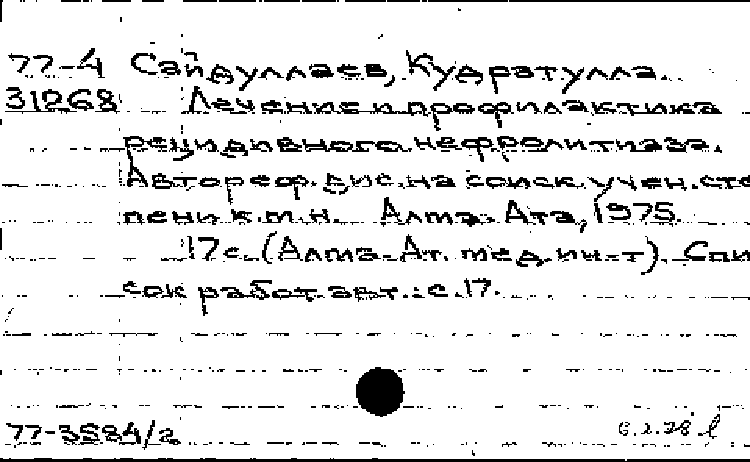 77-4 Сайдуллаев, Кудратулла.
31268 Лечение и профилактика
рецидивного нефролитиаза.
Автореф. дис. на соиск. учен. сте
пени к.м.н. Алма-Ата, 1975.
17с. (Алма-Ат. мед. ин-т). Спи
сок работ авт.: с.17.
77-3584/2